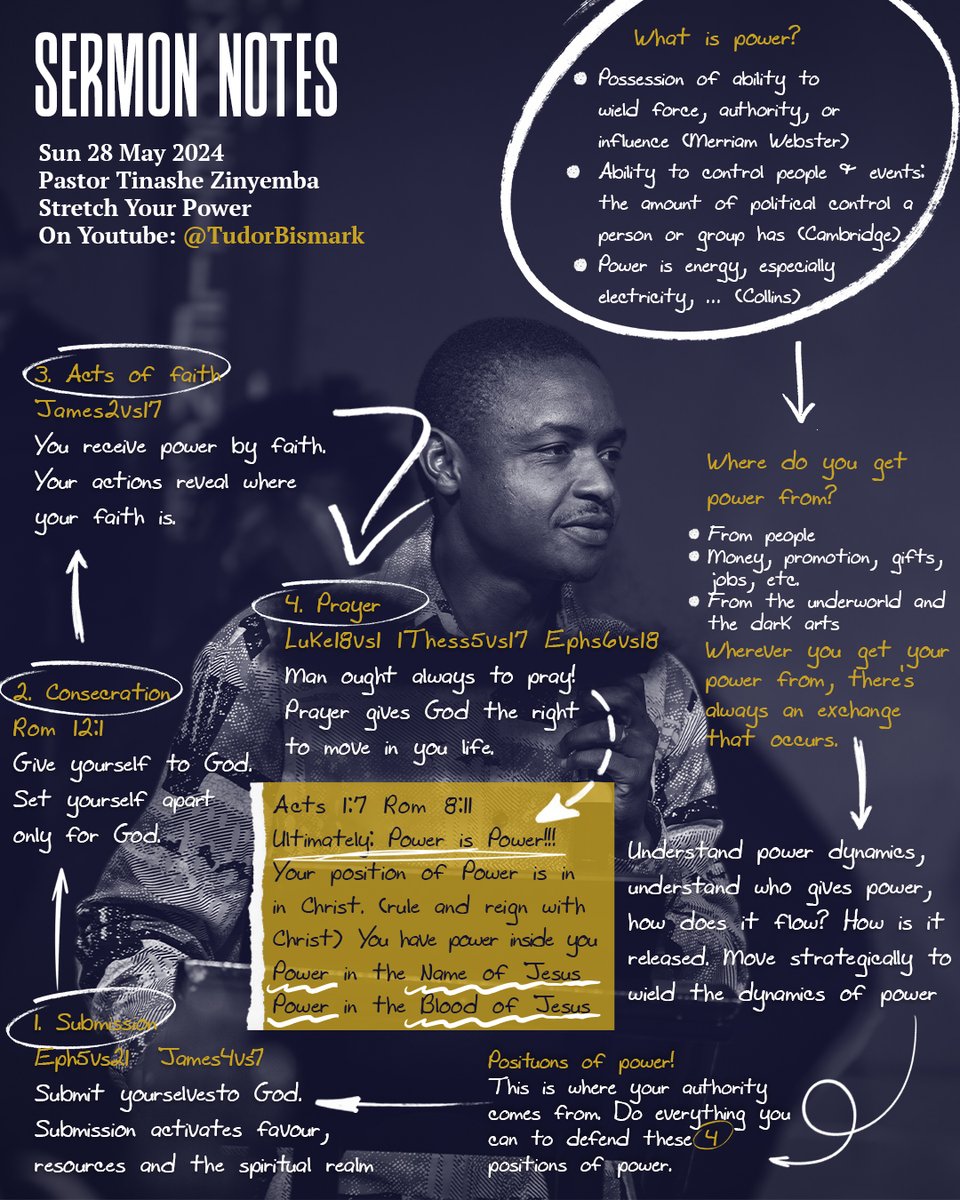 SERMON NOTES
Sun 28 May 2024
Pastor Tinashe Zinyemba
Stretch Your Power
On Youtube: @TudorBismark
What is power?
Possession of ability to
wield force, authority, or
influence (Merriam Webster)
Ability to control people & events:
the amount of political control a
person or group has (Cambridge)
Power is energy, especially
electricity, ... (Collins)
Where do you get
power from?
From people
Money, promotion, gifts,
jobs, etc.
From the underworld and
the dark arts
Wherever you get your
power from, there's
always an exchange
that occurs.
Understand power dynamics,
understand who gives power,
how does it flow? How is it
released. Move strategically to
wield the dynamics of power
Posituons of power!
This is where your authority
comes from. Do everything you
can to defend these 4
positions of power.
1. Submission
Eph5vs21 James4vs7
Submit yourselvesto God.
Submission activates favour,
resources and the spiritual realm
2. Consecration
Rom 12:1
Give yourself to God.
Set yourself apart
only for God.
3. Acts of faith
James2vs17
You receive power by faith.
Your actions reveal where
your faith is.
4. Prayer
Luke18vs1 1Thess5vs17 Ephs6vs18
Man ought always to pray!
Prayer gives God the right
to move in you life.
Acts 1:7 Rom 8:11
Ultimately: Power is Power!!!
Your position of Power is in
in Christ. (rule and reign with
Christ) You have power inside you
Power in the Name of Jesus
Power in the Blood of Jesus